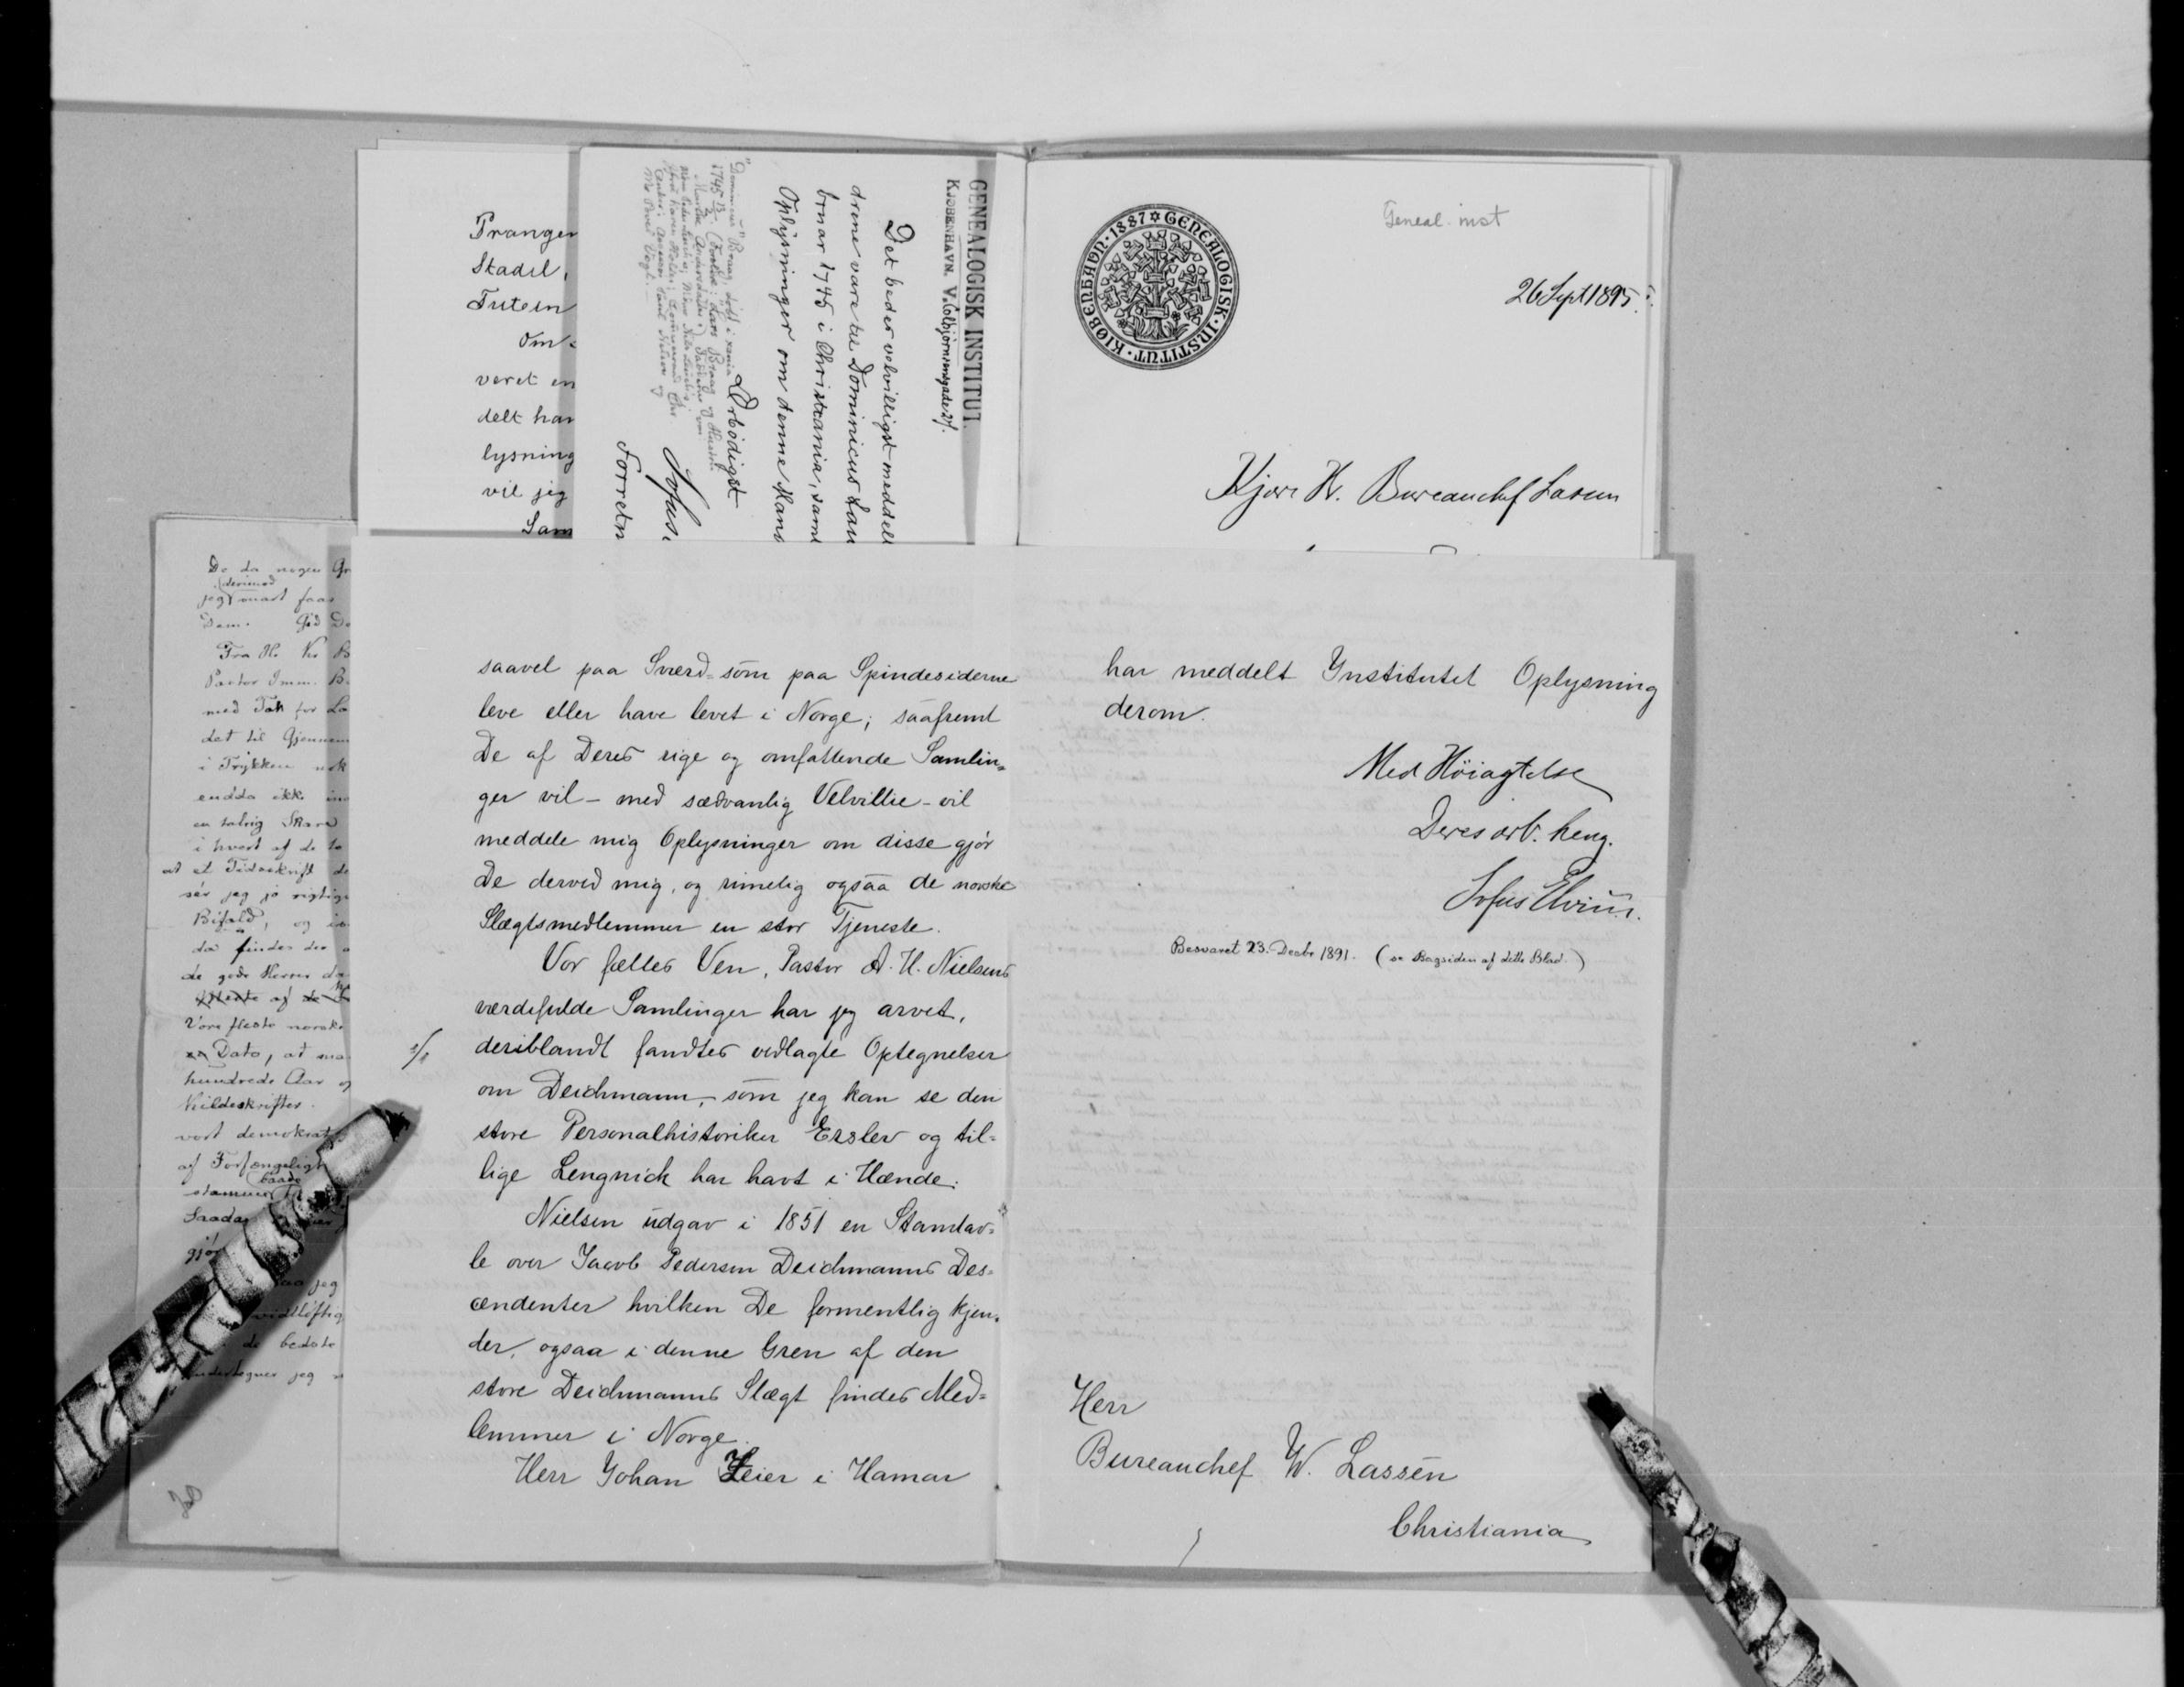 Pranger
Stadel,
Tutein
Om-
veret en
delt har
lysning
vil jeg
Sam
GENEALOGISK INSTITUT.
KJØBENHAVN. V. Colbjørnsensgade 2
Det bedes velvilligst meddelt
drene vare til Dominicus Lau
bruar 1745 i Christiania, samt
Oplysninger om denne Mans
Ærbødigst
Sofus
Forretn
Geneal. inst
KJØBENHAVN · 1887 ✡ GENEALOGISK · INSTITUT ·
26 Sept 1895.
Kjære Hr. Bureauchef Lassen
De da nogen Gr
(derimod
jeg snart faar
Dem. God De
Fra Hr
Pastor Imm. B
med Tak for La
det til Gjennem
i Trykken nok
endda ikke
en talrig Skare
i hvert af de to
at et Tidsskrift de
sér jeg jo rigtig
Bifald, og
da findes der
de gode Herrer da
Vore fleste norske
Dato, at ma
hundrede Aar og
Kildeskrifter.
vort demokrat
af Forfængeligh
(baade
stammer
gjør
jeg
vidtløftig
de bedste
undertegner jeg
saavel paa Sværd- som paa Spindesiderne
leve eller have levet i Norge; saafremt
De af Deres rige og omfattende Samlin-
ger vil - med sædvanlig Velvillie - vil
meddele mig Oplysninger om disse gjør
De derved mig, og rimelig ogsaa de norske
Slægtsmedlemmer en stor Tjeneste.
Vor fælles Ven, Pastor A. H. Nielsens
værdifulde Samlinger har jeg arvet,
deriblandt fandtes vedlagte Optegnelser
om Deichmann, som jeg kan se den
store Personalhistoriker Erslev og til-
lige Lengnick har havt i Hænde.
Nielsen udgav i 1851 en Stamtav-
le over Jacob Pedersen Deichmanns Des-
cendenter hvilken De formentlig kjen-
der, ogsaa i denne Gren af den
store Deichmanns Slægt findes Med-
lemmer i Norge.
Herr Johan Heier i Hamar
har meddelt Institutet Oplysning
derom.
Med Høiagtelse
Deres ærb. heng.
Sofus Elvius.
Besvaret 23. Decbr 1891. (se Bagsiden af dette Blad.)
Herr
Bureauchef W. Lassen
Christiania